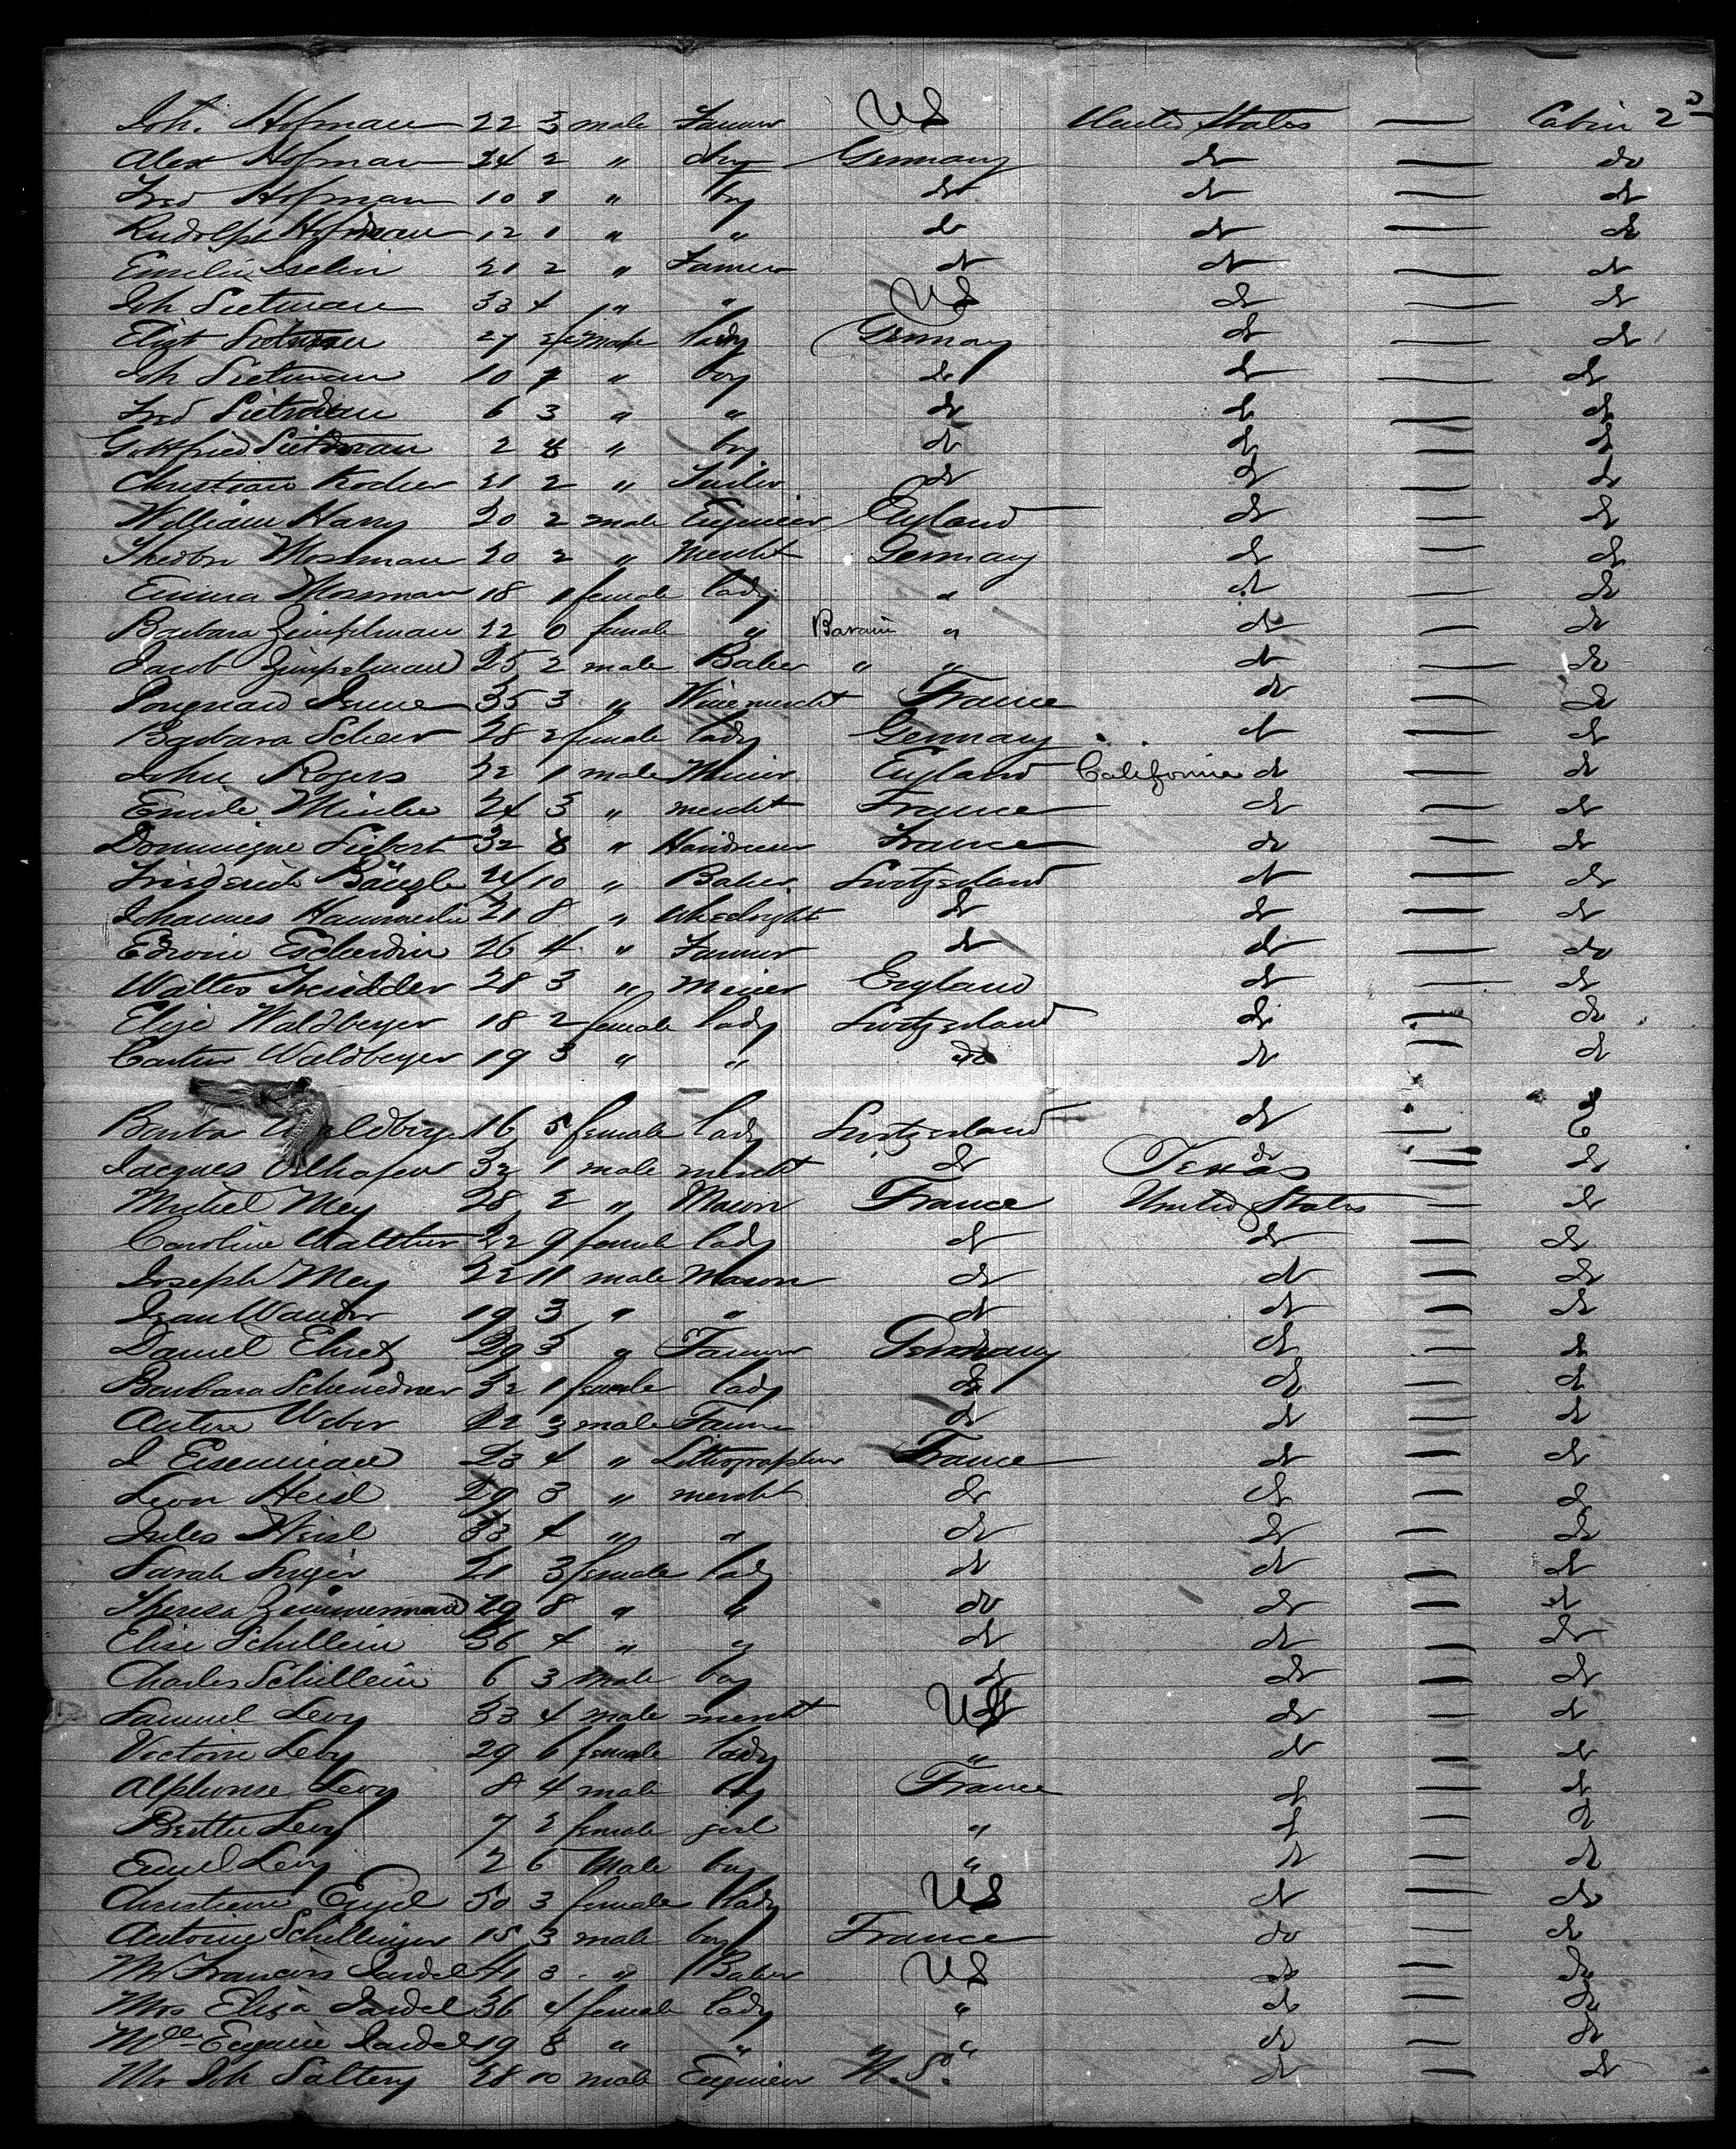 Joh. Hofman 22 3 male Farmer US United States — Cabin 2d
Alex Hofman 24 2 " do Germany do — do
Fred Hofman 10 9 " boy do do — do
Rudolph Hofman 12 1 " " do do — do
Emelin Iselin 21 2 " Farmer do do — do
Joh Sietman 33 4 " " US do — do
Elist Sietman 27 2 female lady Germany do — do
Joh Sietman 10 7 " boy do do — do
Fred Sietman 6 3 " " do do — do
Gottfried Sietman 2 8 " boy do do — do
Christian Kocher 21 2 " do do — do
William Harry 20 2 male Engineer England do — do
Theodor Mosman 20 2 " Mercht Germany do — do
Emma Mosman 18 1 female lady " do — do
Barbara Zimpelman 22 0 female " Bavaria " do — do
Jacob Zimpelman 25 2 male Baker " " do — do
35 3 " Winemercht France do — do
Barbara Scheer 28 2 female lady Germany do — do
John Rogers 32 1 male Minier England California do — do
Emile 24 3 " mercht France do — do
Dominique Siebert 32 8 " France do — do
Friederich Bänzle 24 10 " Baker Switzerland do — do
Johannes Hammerlin 21 8 " Wheelright do do — do
Edwin Escherdin 26 4 " Farmer do do — do
Walter Treidder 28 3 " Minier England do — do
Elise Waldberger 18 2 female lady Switzerland do — do
Waldberger 19 3 " " do do — do
16 5 female lady Switzerland do — do
Jacques Oelhafen 32 1 male mercht do Texas do — do
Michel Mey 28 2 " Mason France United States — do
Caroline Walther 22 9 female lady do do — do
Joseph Mey 32 11 male Mason do do — do
Jean 19 3 " " do do — do
Daniel Ehret 29 3 " Farmer Germany do — do
Barbara Schmedner 32 1 female lady do do — do
Anton Weber 22 3 male Farmer do do — do
J Eisenman 23 4 " Lithographer France do — do
Leon Heisl 29 3 " mercht do do — do
Jules Heisl 33 4 " " do do — do
Sarah 21 3 female lady do do — do
Theresa Zimmerman 29 8 " " do do — do
Elise Schillein 36 4 " " do do — do
Charles Schillein 6 3 male boy do do — do
Samuel Levy 33 4 male mercht US do — do
Victoire Levy 29 6 female lady " do — do
Alphonse Levy 8 4 male boy France do — do
Berthe Levy 7 2 female girl " do — do
Emil Levy 2 6 Male boy " do — do
Christiane Engel 50 3 female lady US do — do
Antoine Schillinger 15 3 male boy France do — do
Mr Francois Jardel 41 3 " Baker US do — do
Mrs Eliza Jardel 36 4 female lady " do — do
Mlle Eugenie Jardel 19 8 " " " do — do
Mr Joh Saltery 28 10 male Engineer U.S. do — do